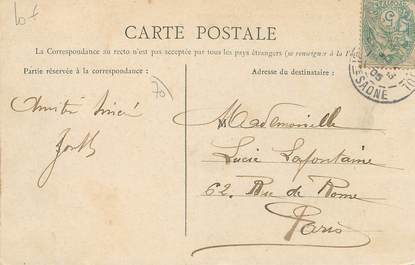 CARTE POSTALE
La Correspondance au recto n'est pas acceptée par tous les pays étrangers (se renseigner à la
Partie réservée à la correspondance :
Adresse du destinataire :
70
Amitié sincère
Mademoiselle
Lucie Lafontaine
62. Rue de Rome
Paris
5
SAONE